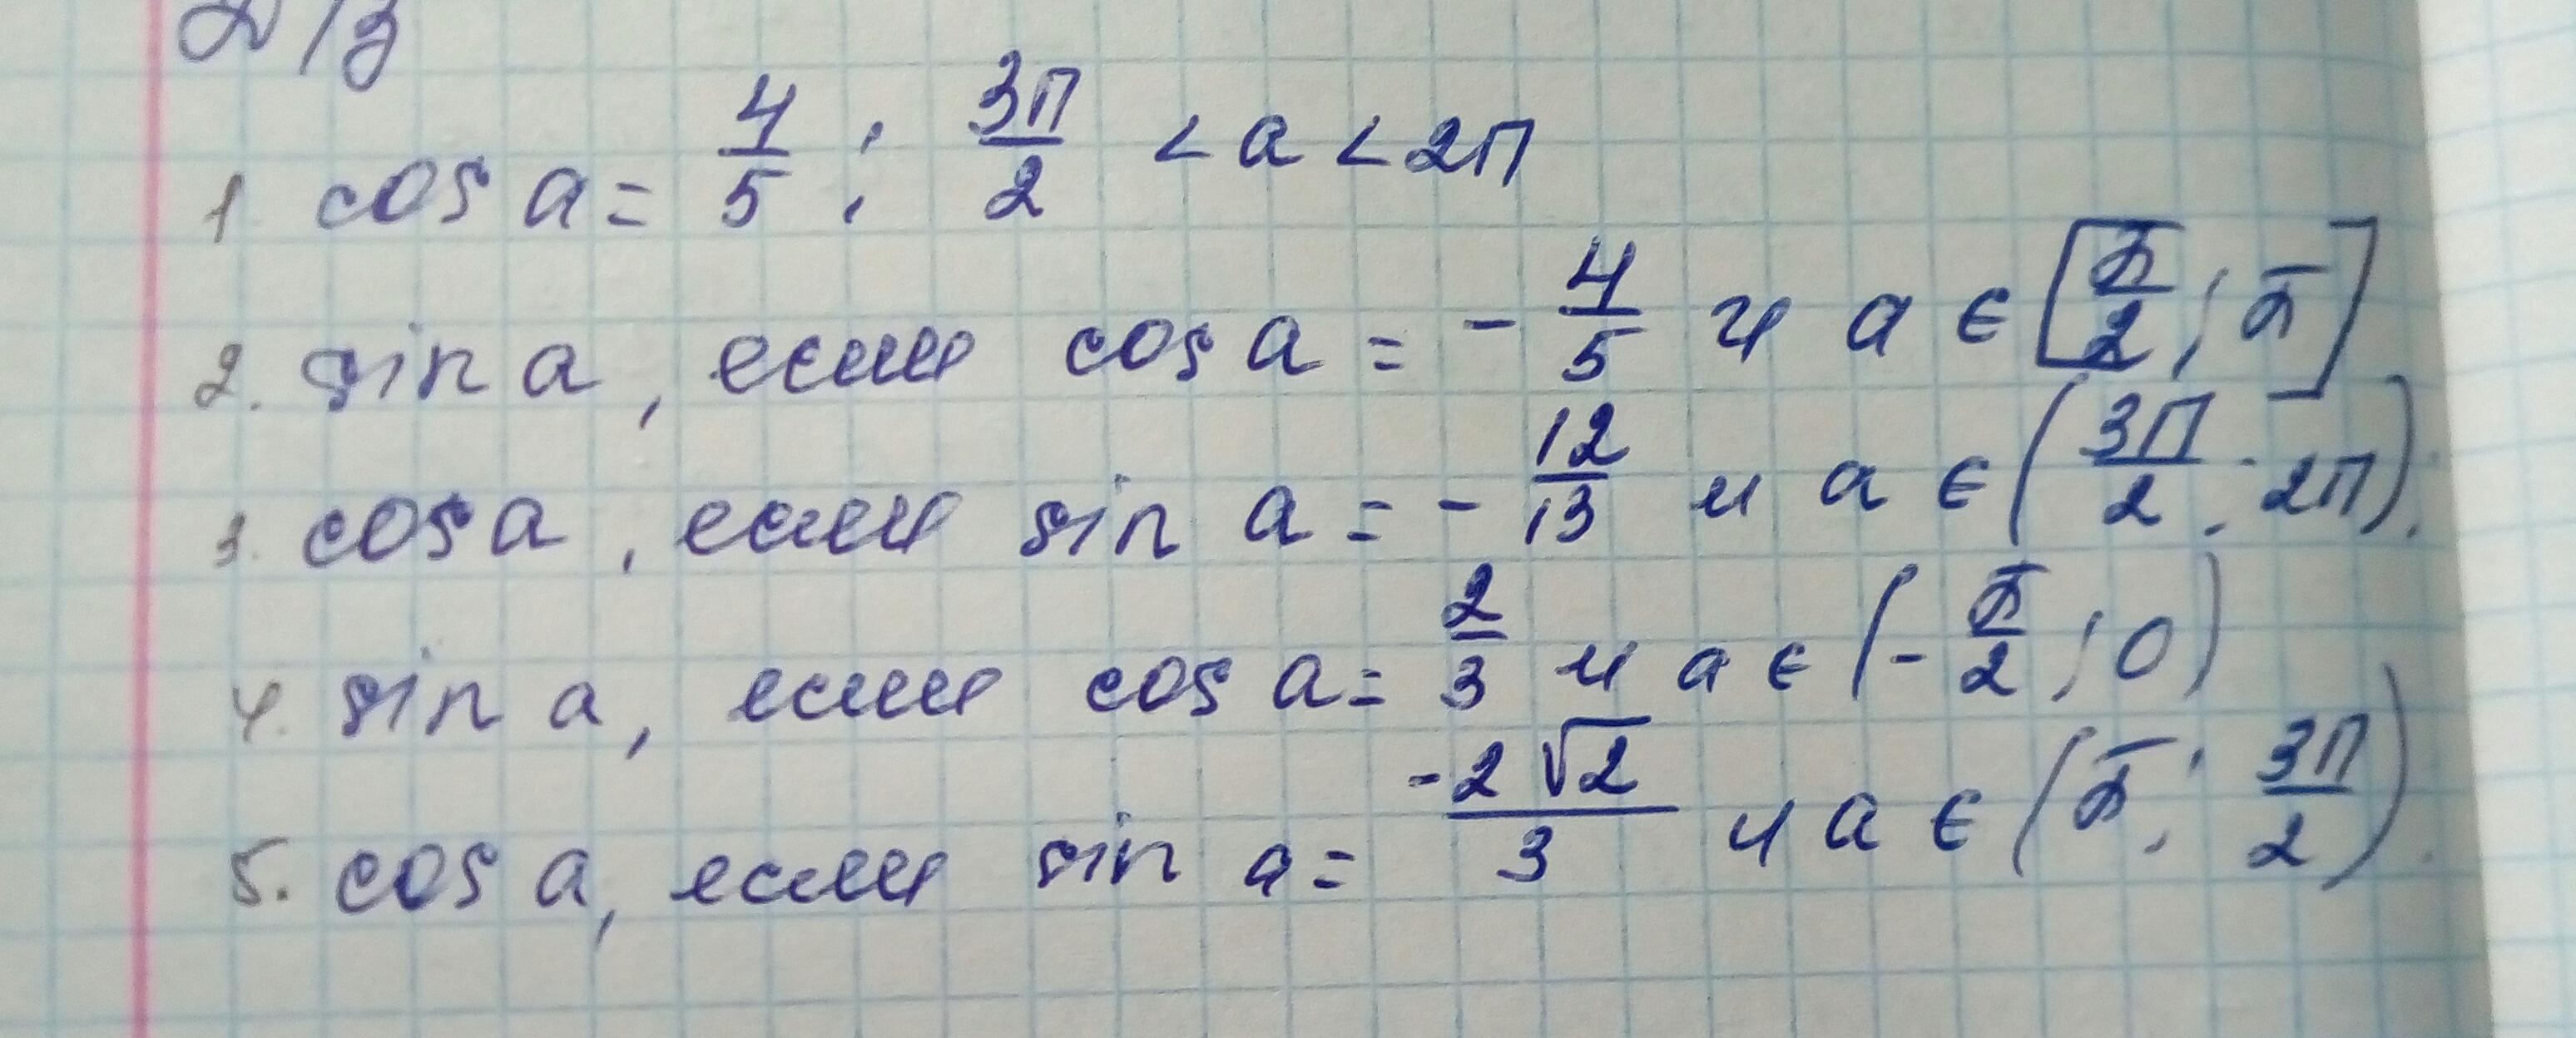 Д/з
1. cos a = 4/5 ; 3π/2 < a < 2π
2. sin a, если cos a = - 4/5 и a ∈ [π/2 ; π]
3. cos a, если sin a = - 12/13 и a ∈ (3π/2 ; 2π);
4. sin a, если cos a = 2/3 и a ∈ (- π/2 ; 0)
5. cos a, если sin a = -2√2/3 и a ∈ (π; 3π/2).